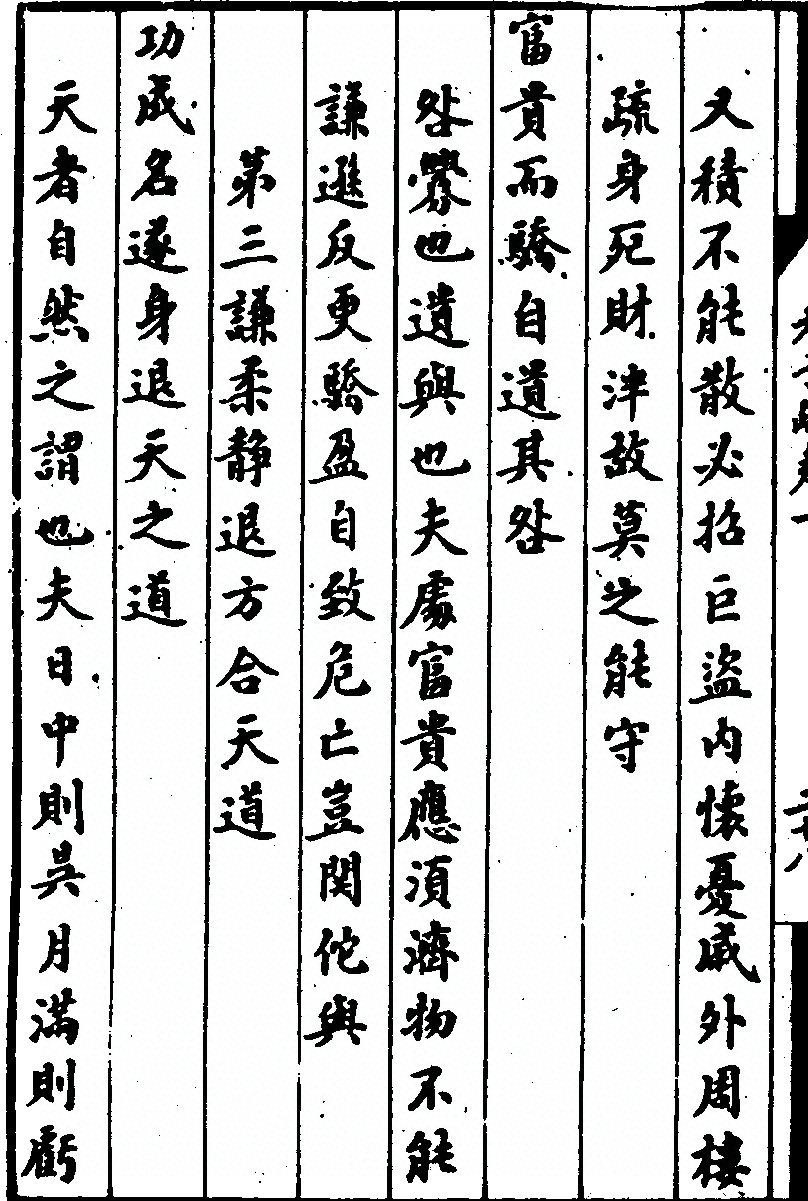 又積不能散必招巨盜内懷憂戚外周樓
疏身死財泮故莫之能守
富貴而驕自遺其咎
咎釁也遺與也夫處富貴應須濟物不能
謙遜反更驕盈自致危亡豈関佗與
第三謙柔静退方合天道
功成名遂身退天之道
天者自然之謂也夫日中則昃月滿則虧